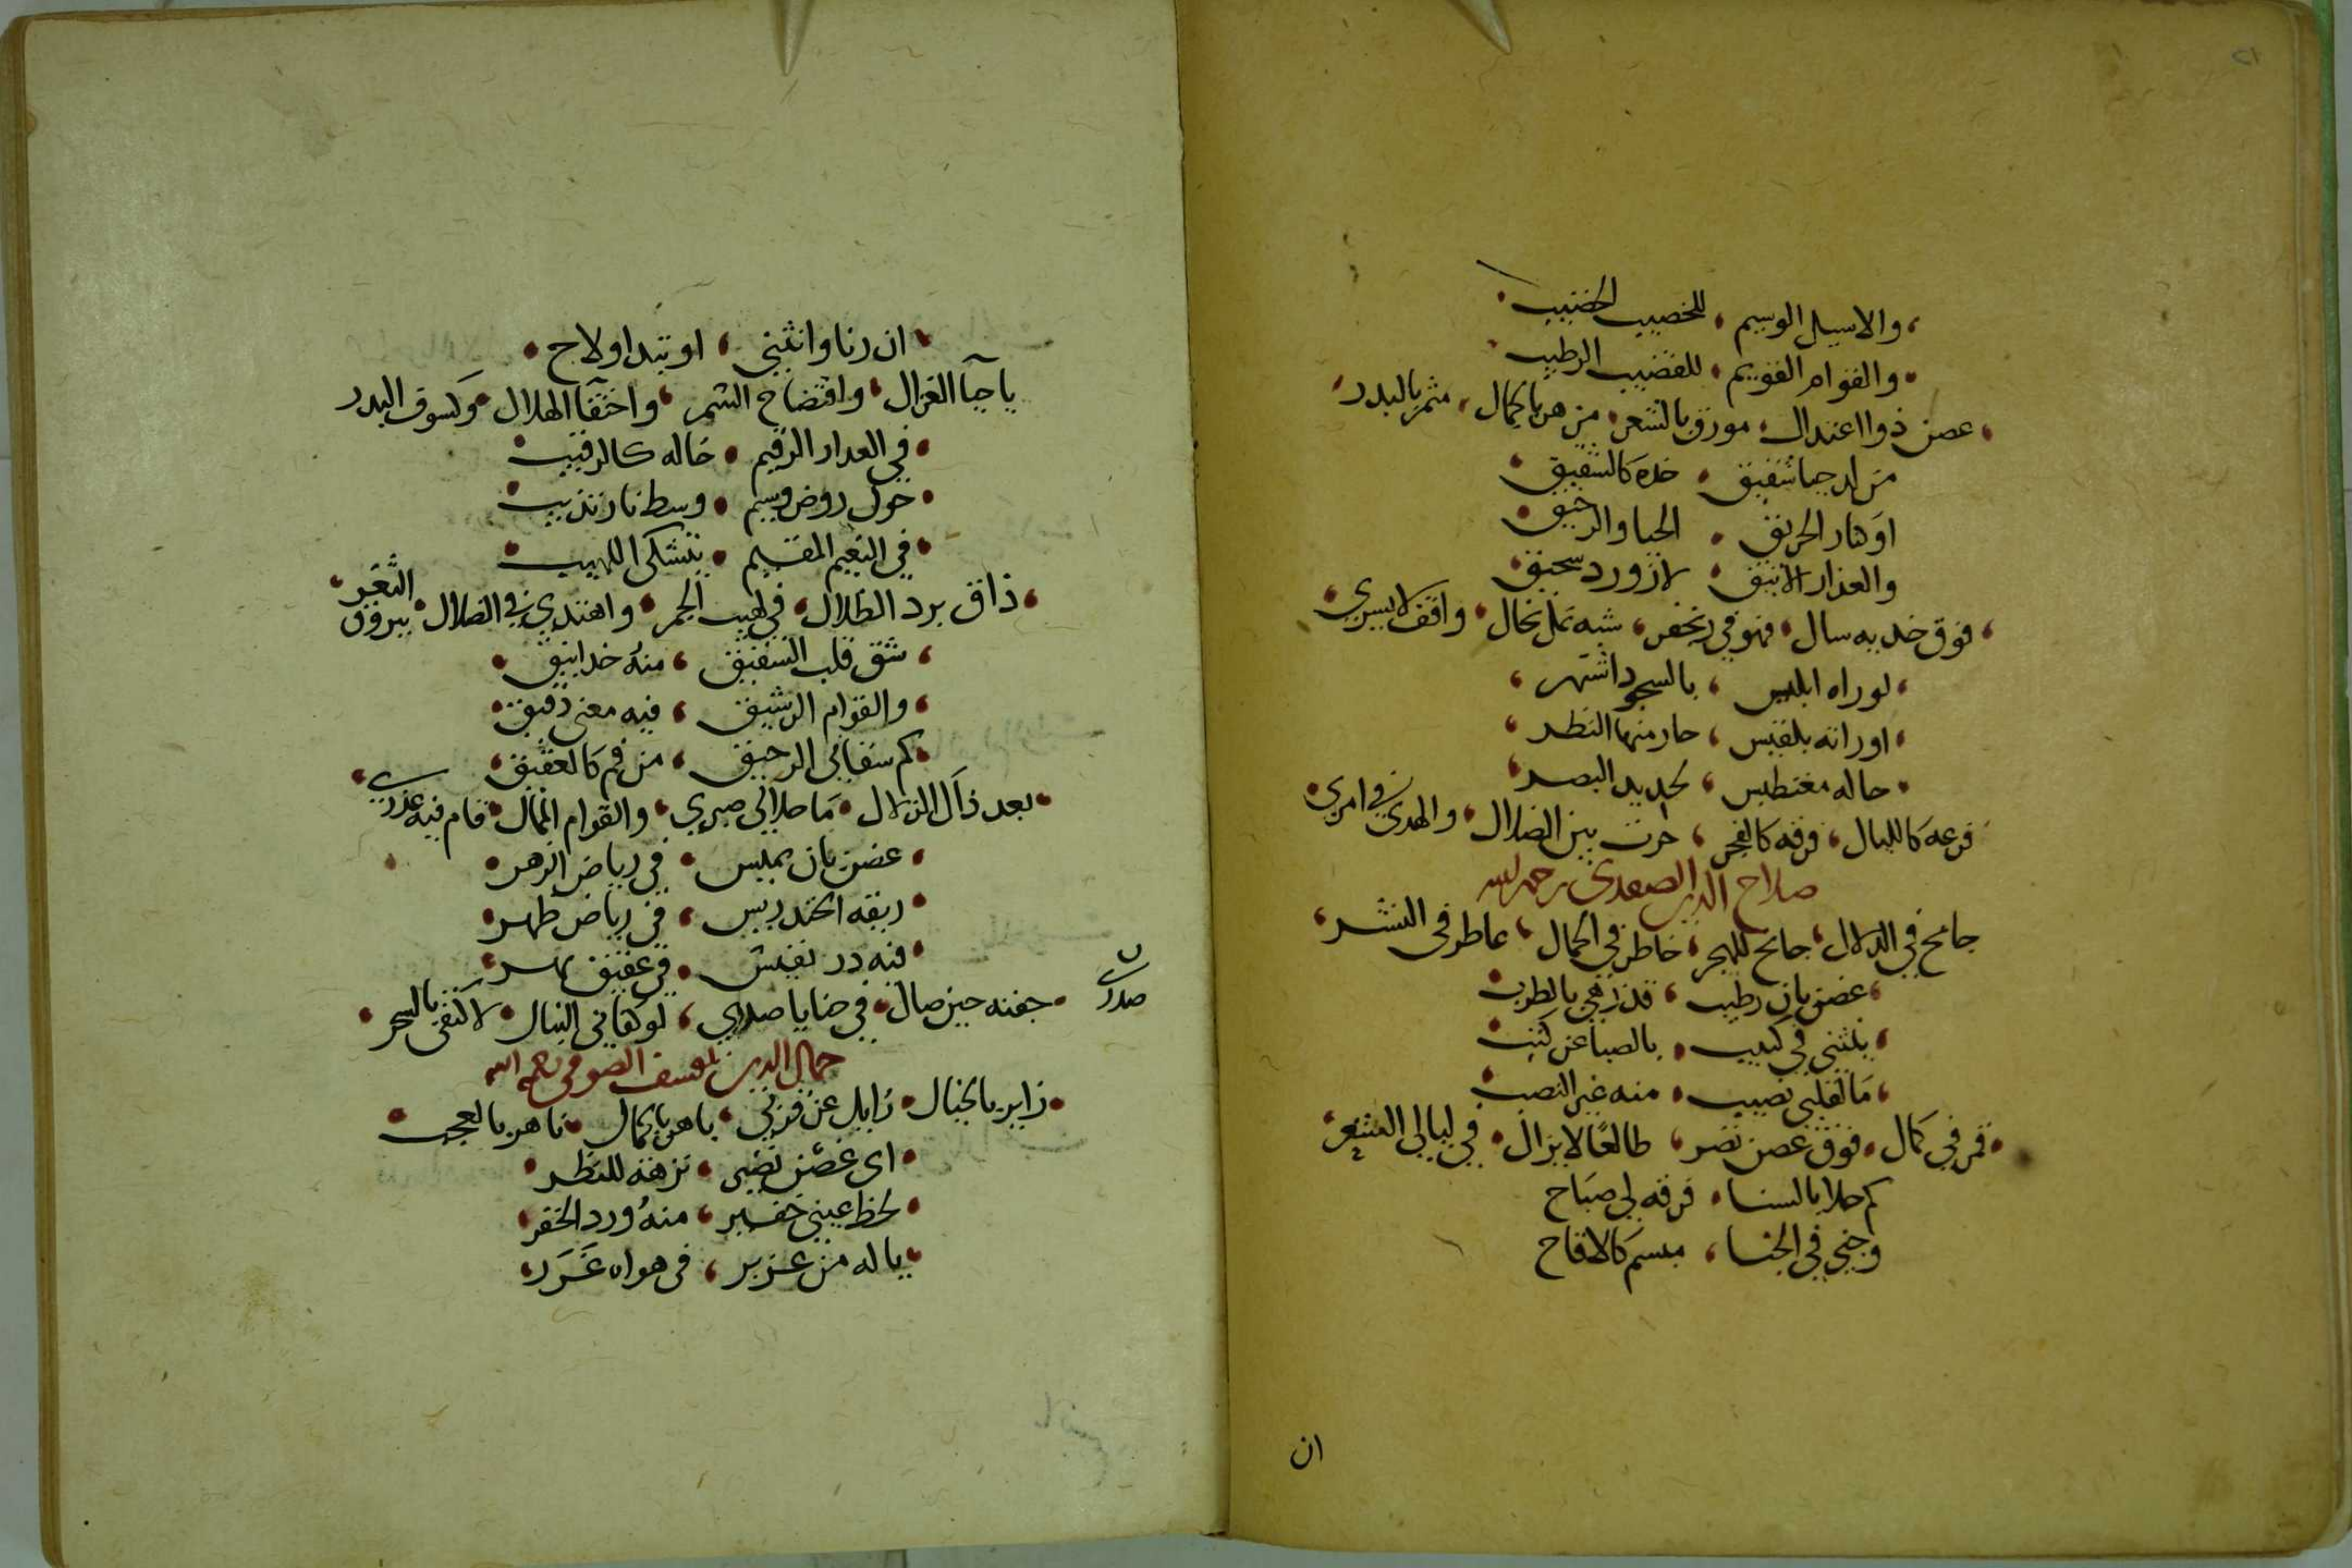 ٢١
والاسيل الوسيم للخصيب الخضيب
والقوام القويم للقضيب الرطيب
غصن ذو اعتدال مورق بالشعر مزهر بالجمال مثمر بالبدر
شقيق خده كالشقيق
او كنار الحريق الحيا والرحيق
والعذار الانيق لازورد سحيق
فوق خد به سال فهو في شبه نمل بخال واقف لا يسري
لو راه ابليس بالسجود اشتهر
او راته بلقيس حار منها النظر
خاله مغنطيس لحديد البصر
فرعه كالليال فرقه كالفجر حرت بين الضلال والهدى في امري
صلاح الدين الصفدي رحمه الله
جامح في الدلال جانح للهجر خاطر في الجمال عاطر في النشر
غصن بان رطيب قد زهي بالطرب
ينثني في كثيب بالصبا عن كثب
ما لقلبي نصيب منه غير النصب
قمر في كمال فوق غصن نضر طالعا لا يزال في ليالي الشعر
كم جلا بالسنا فرقه لي صباح
وجني في الجنا مبسم كالاقاح
ان
ان رنا وانثني او تبدا ولاح
يا حيا الغزال وافتضاح السمر واختفا الهلال وكسوف البدر
في العذار الرقيم خاله كالرقيب
حول روض وسيم وسط نار تذيب
في النعيم المقيم يتشكى اللهيب
ذاق برد الظلال في لهيب الجمر واهتدي في الضلال ببروق الثغر
شق قلب الشقيق منه خد انيق
والقوام الرشيق فيه معنى دقيق
كم سقاني الرحيق من فم كالعقيق
بعد ذاك الزلال ما حلا لي صبري والقوام الممال قام فيه عذري
غصن بان يميس في رياض الزهر
ريقه الخندريس في رياض طهر
فيه در نفيس في عقيق بهر
جفنه حين صال في حنايا صدري لو كفاني النبال لاكتفى بالسحر
صدري
جمال الدين يوسف الصوفي رحمه الله
زاير بالخيال زايل عن قربي باهر بالجمال تاهر بالعجب
اي غصن نضير نزهة للنظر
لحظ عيني خفير منه ورد الخفر
يا له من عزيز في هواه غرر